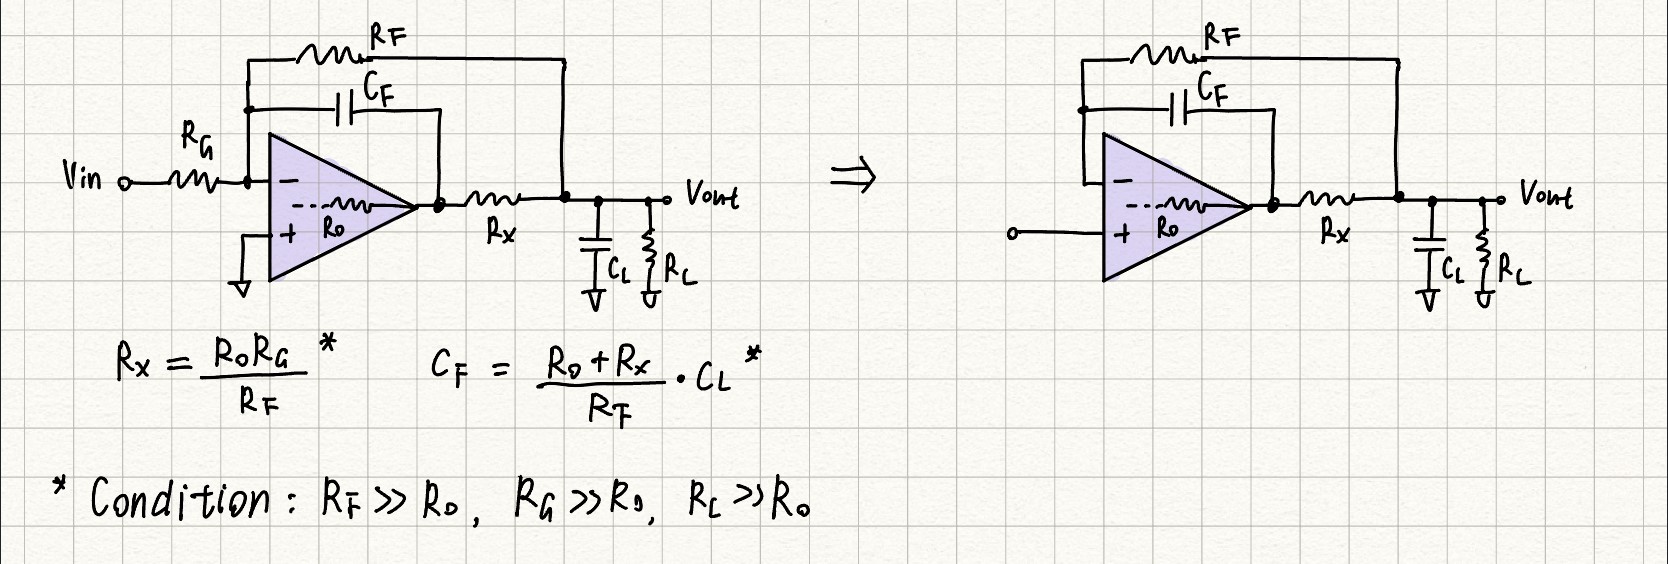 RF
CF
RG
Vin
−
Ro
+
Rx
Vout
CL
RL
⇒
RF
CF
−
Ro
+
Rx
Vout
CL
RL
Rx = RoRG / RF *
CF = Ro + Rx / RF · CL *
* Condition : RF >> Ro, RG >> Ro, RL >> Ro